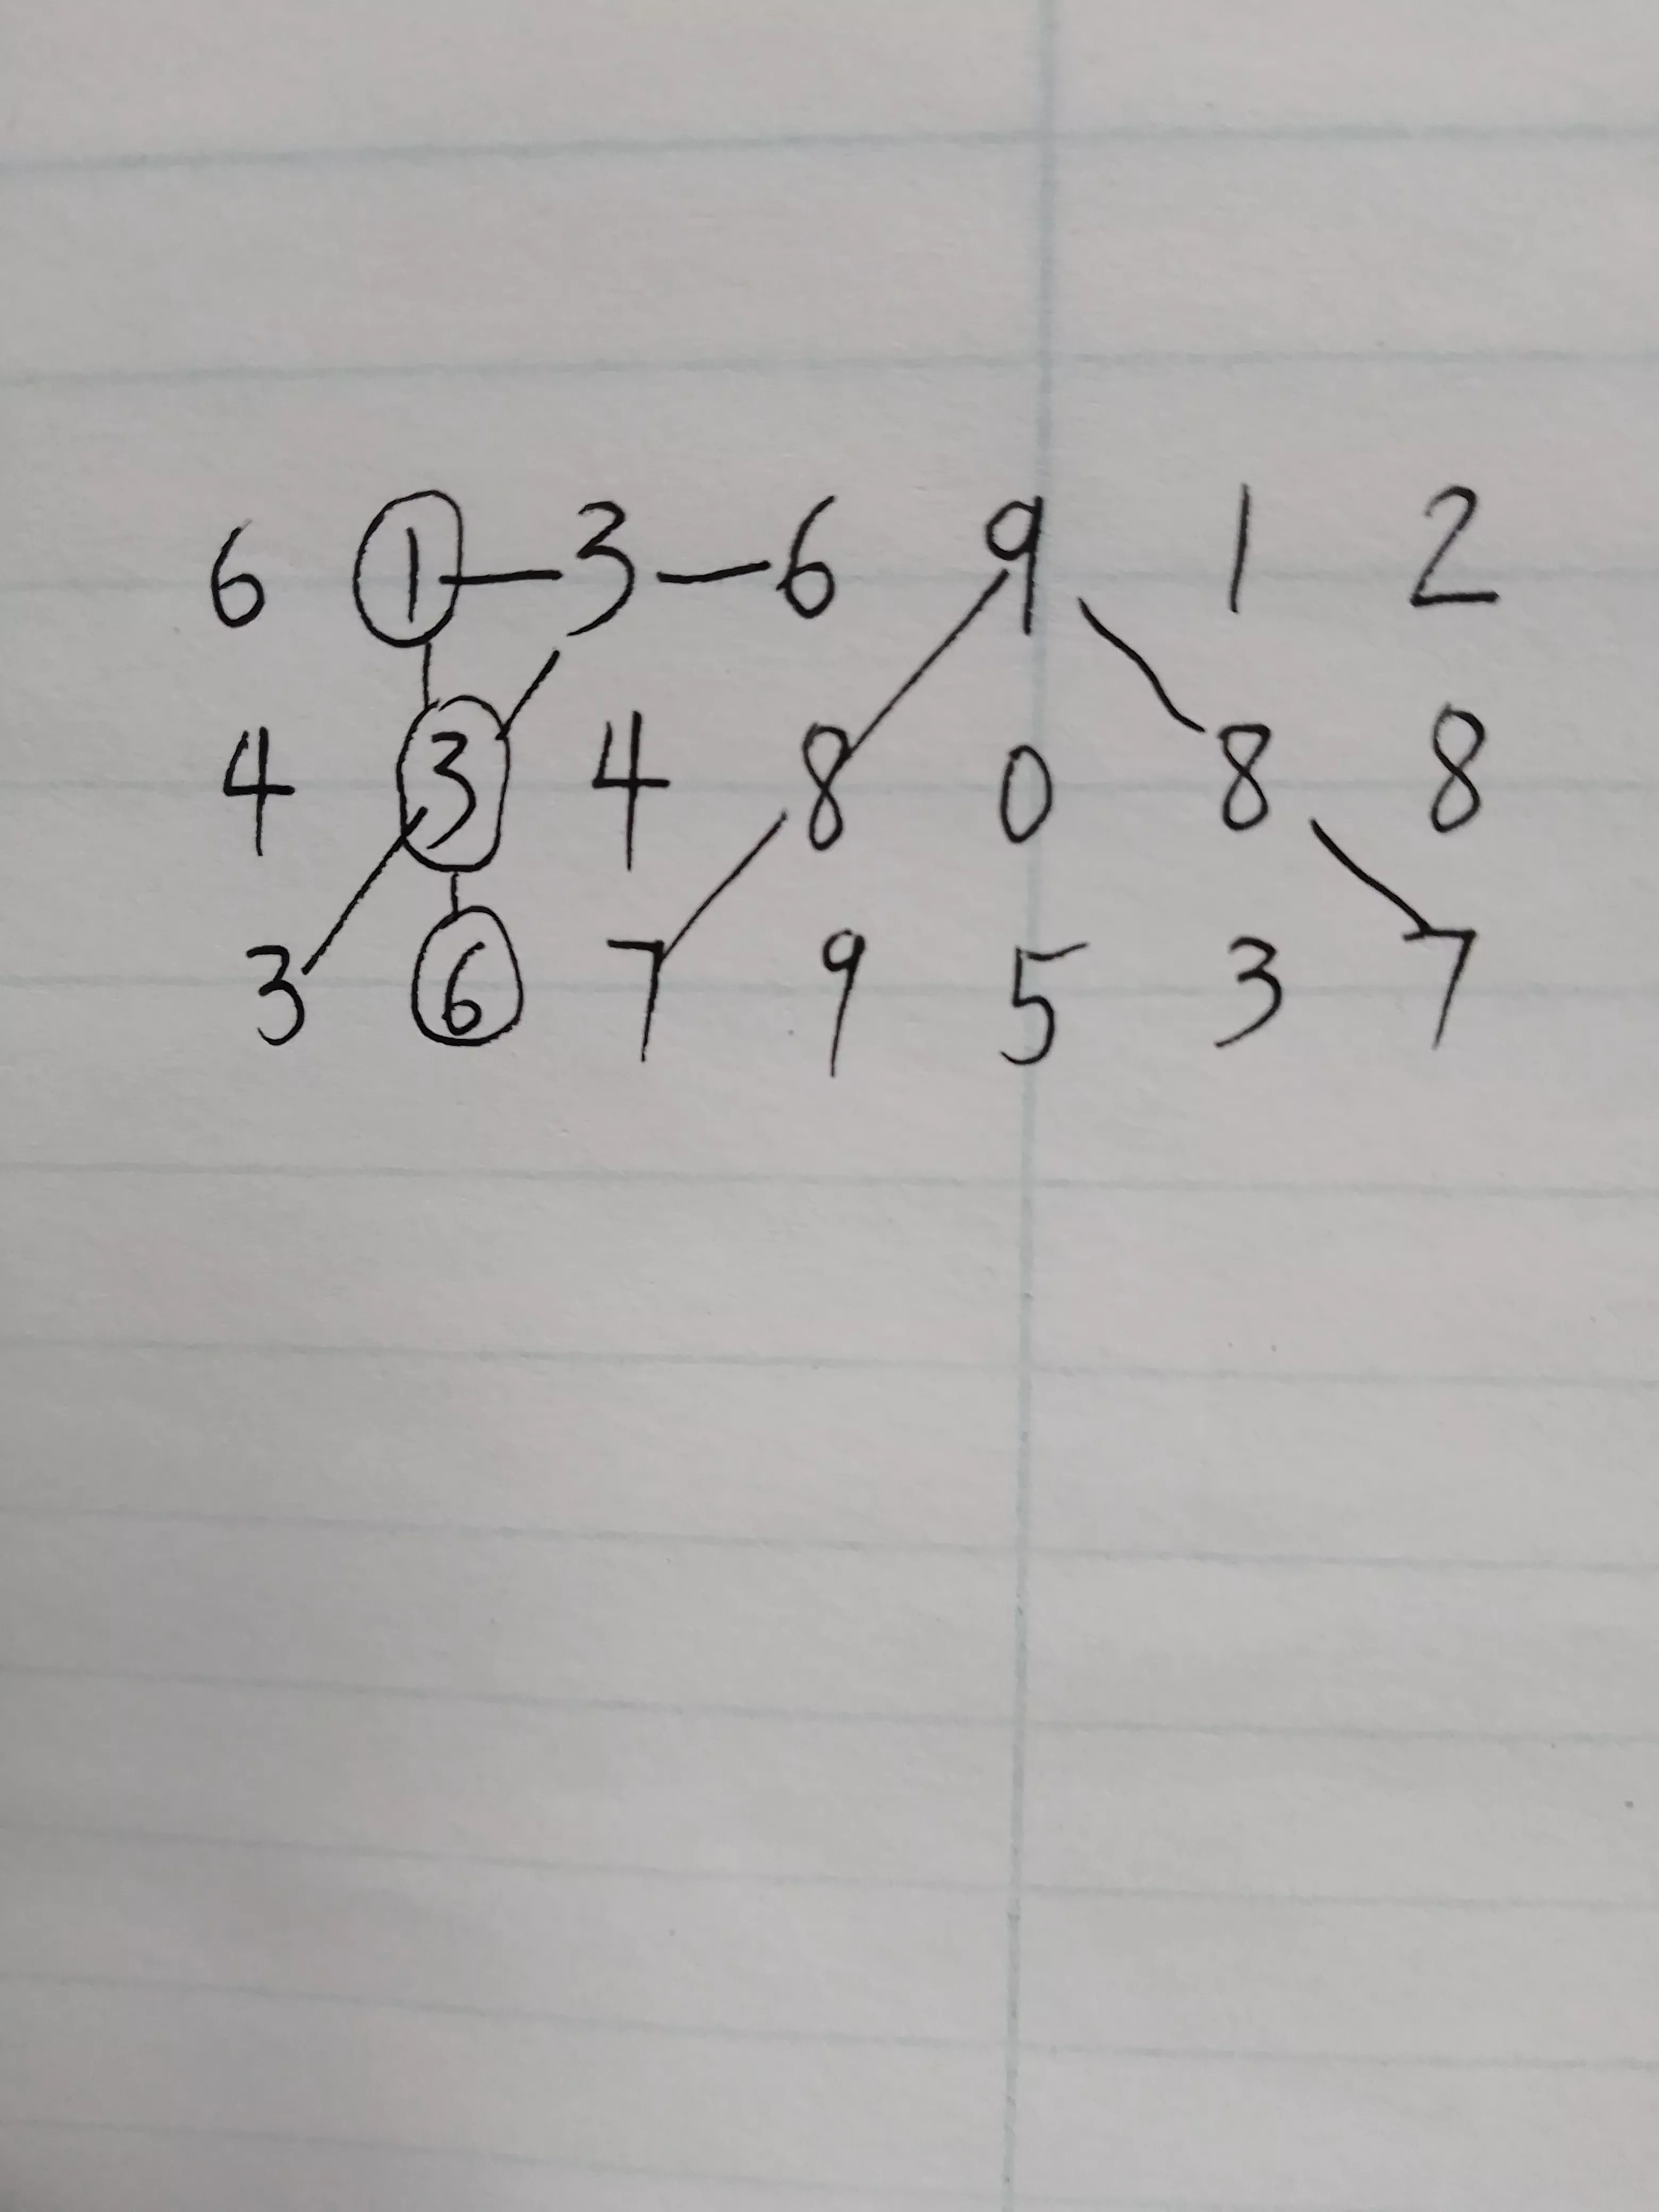 6 1 3 6 9 1 2
4 3 4 8 0 8 8
3 6 7 9 5 3 7